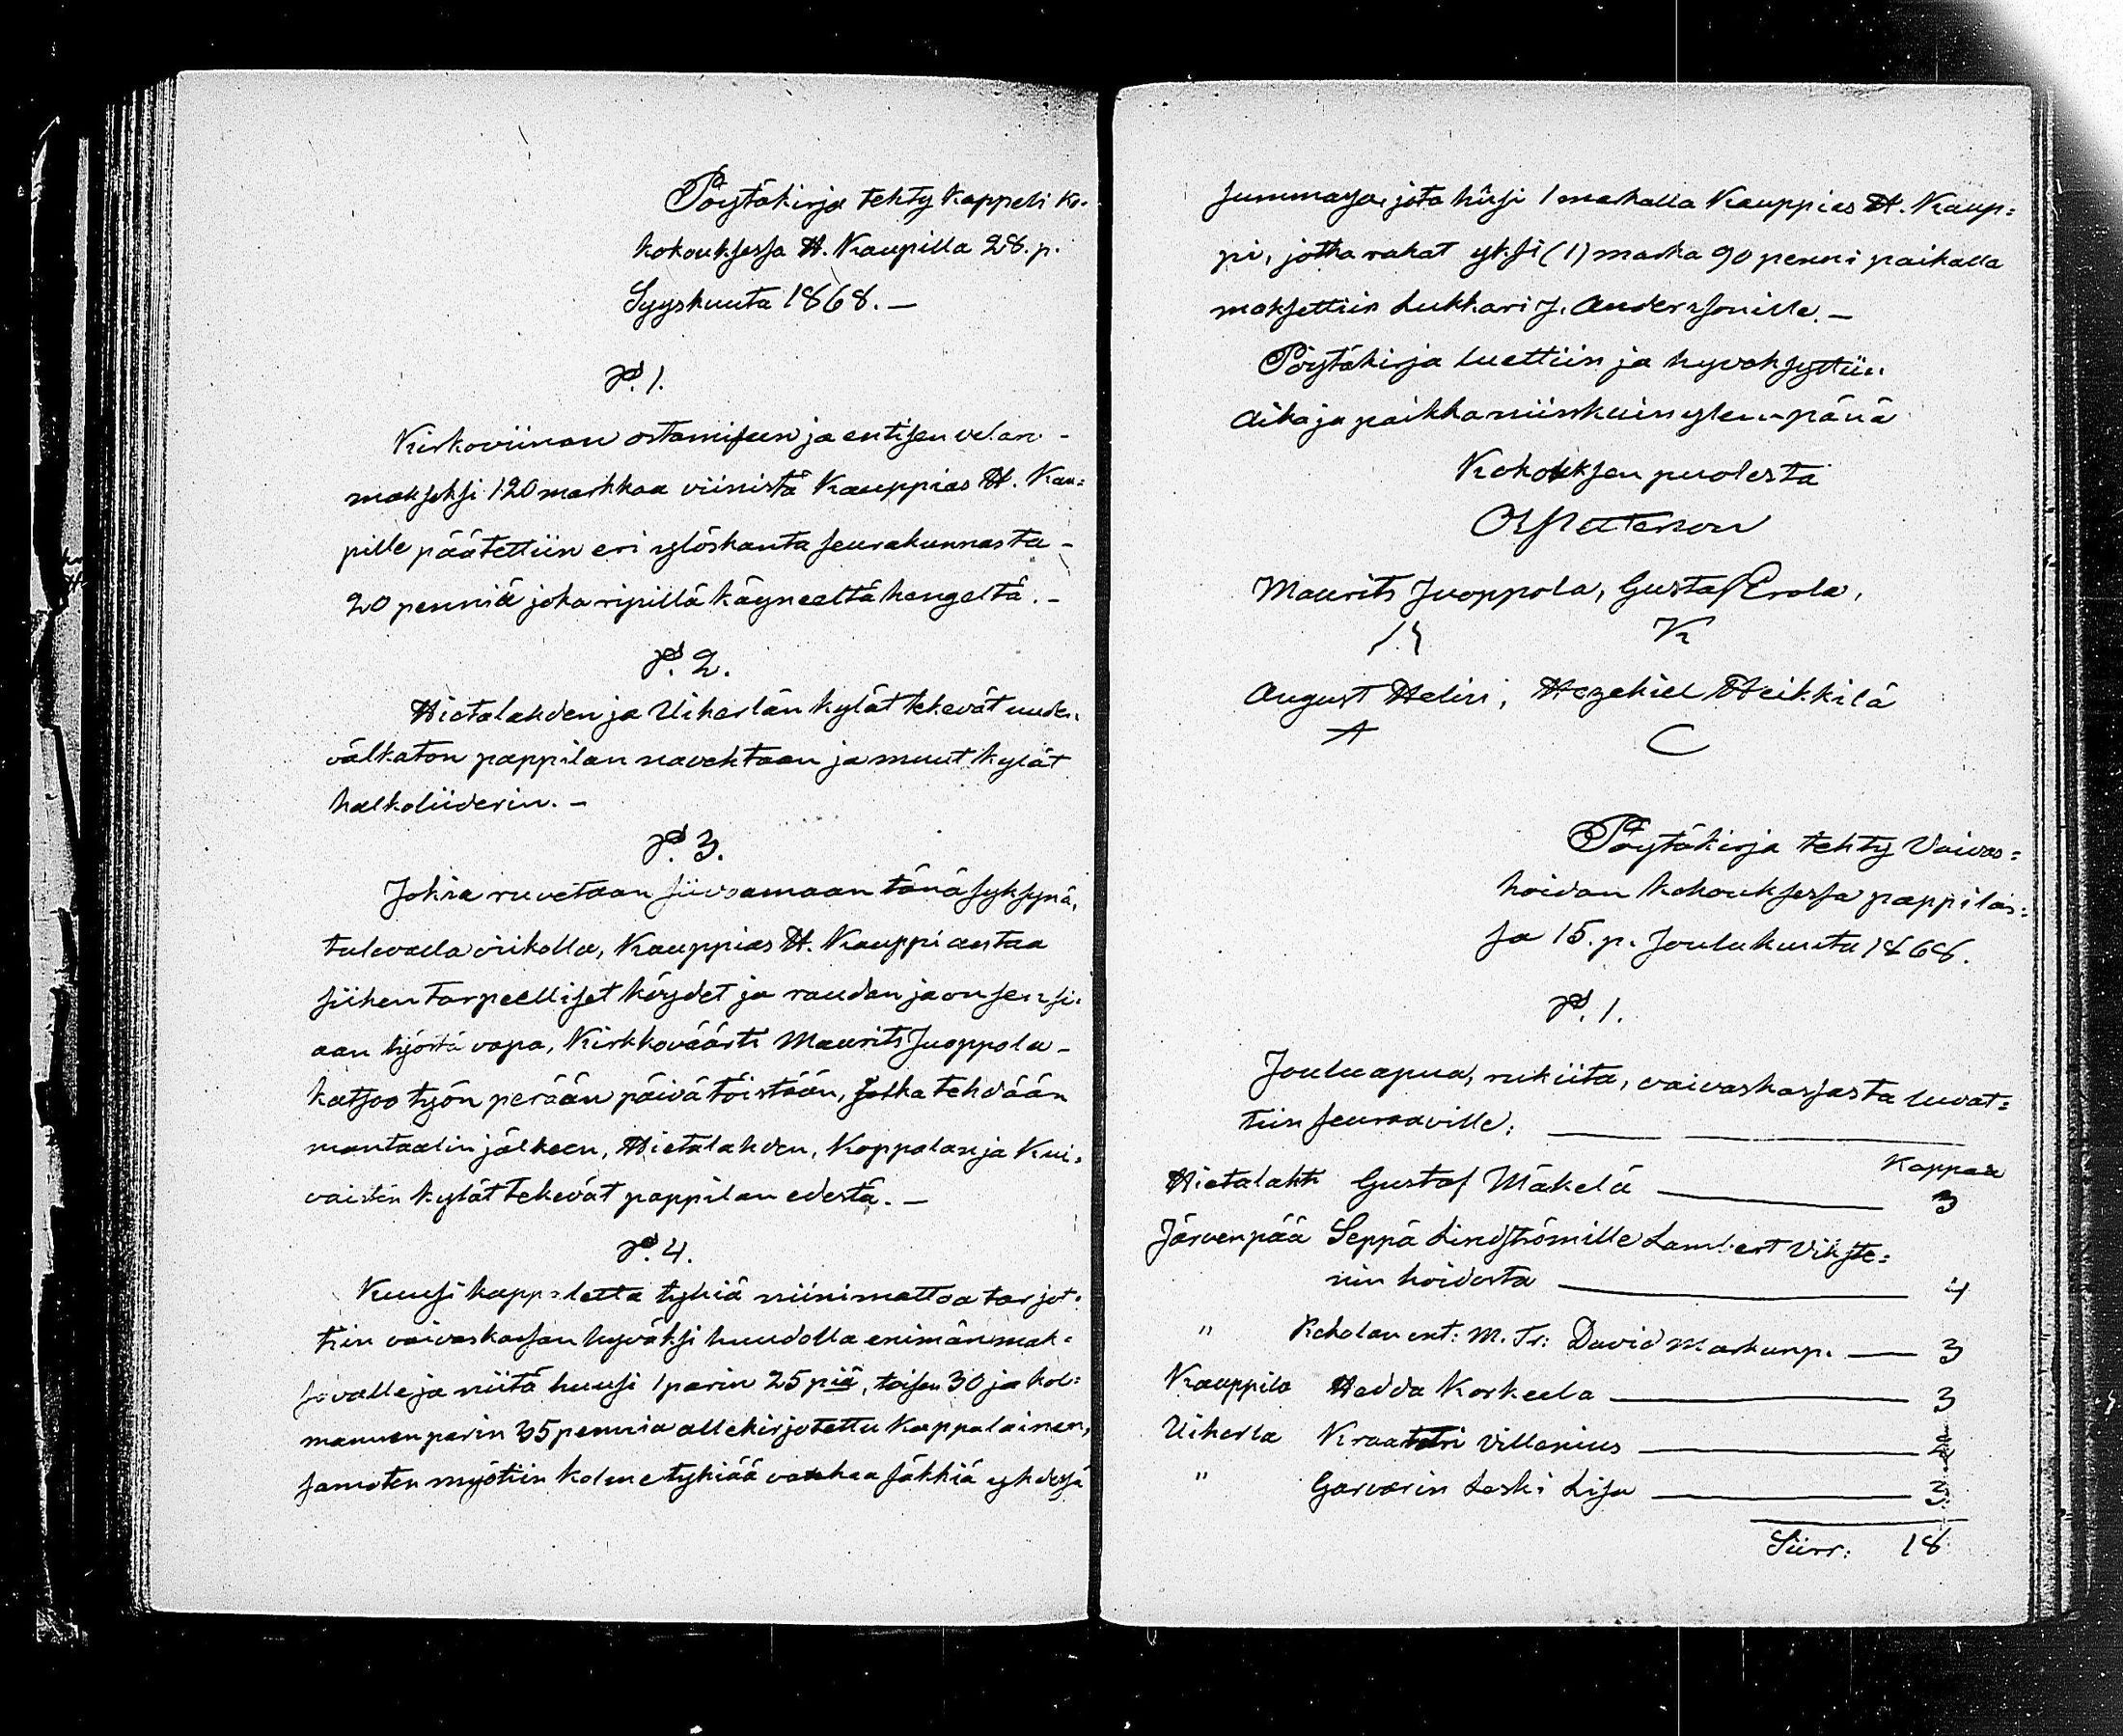 Pöytäkirja tehty Kappeli ko-
kokouksessa H. Kaupilla 28. p.
Syyskuuta 1868. —
§. 1.
Kirkoviinan ostamiseen ja entisen velan -
maksoksi 120 markkaa viinistä Kauppias H. Kau=
pille päätettiin eri ylöskanta seurakunnasta -
20 penniä joka ripillä käyneeltä hengeltä. -
§. 2.
Hietalahden ja Uiherlän kylät tekevät uuden
välkaton pappilan navehtaan ja muut kylät
halkoliiderin. -
§. 3.
Jokia ruvetaan siivoamaan tänä syksynä,
tulevalla viikolla, Kauppias H. Kauppi antaa
siihen tarpeelliset köydet ja raudan ja on sen si-
aan työstä vapa, Kirkkoväärti Maurits Juoppola -
katsoo työn perään päivätöistään, jotka tehdään
mantaalin jälkeen, Hietalahden, Koppolan ja Kui-
vaistin kylät tekevät pappilan edestä. —
§. 4.
Kuusi kappaletta tyhiä niinimattoa tarjot-
tiin vaivaskassan hyväksi huudolla enimän mak-
savalle ja niitä huusi 1 parin 25 piä, toisen 30 ja kol=
mannen parin 35 penniä allekirjotettu Kappalainen,
samoten myötiin kolme tyhiää vanhaa säkkiä yhdessä
summassa, jota hiisi 1 markalla Kauppias H. Kaup=
pi, jotka rahat yksi (1) marka 90 penni paikalla
maksettiin Lukkari J. Anderssonille. —
Pöytäkirja luettiin ja hyvaksyttiin
Aika ja paikka niinkuin ylempänä
Kokouksen puolesta
Maurits Juoppola, Gustaf Erola,
K
August Helin, Hezekiel Heikkilä
A C
Pöytäkirja tehty Vaivas=
hoidan kokouksessa pappilas=
sa 15. p. Joulukuuta 1868.
§. 1.
Jouluapua, rukiita, vaivaskassasta luvat=
tiin seuraaville: —— ——
Kappaa
Hietalahti Gustaf Mäkelä —— 3
Järvenpää Seppä Lindströmille Lambert Vikste=
nin hoidosta —— 4
" Reholan ent: M. Tr: David Markunp. —— 3
Kauppila Hedda Korkeela —— 3
Uiherla Kraatari Villenius —— 2
" Garvarin Leski Lisa —— 3
Siirr: 18